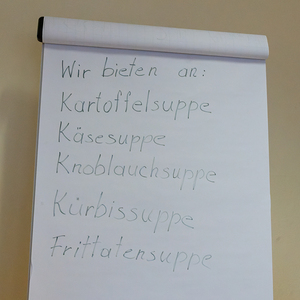 Wir bieten an:
Kartoffelsuppe
Käsesuppe
Knoblauchsuppe
Kürbissuppe
Frittatensuppe